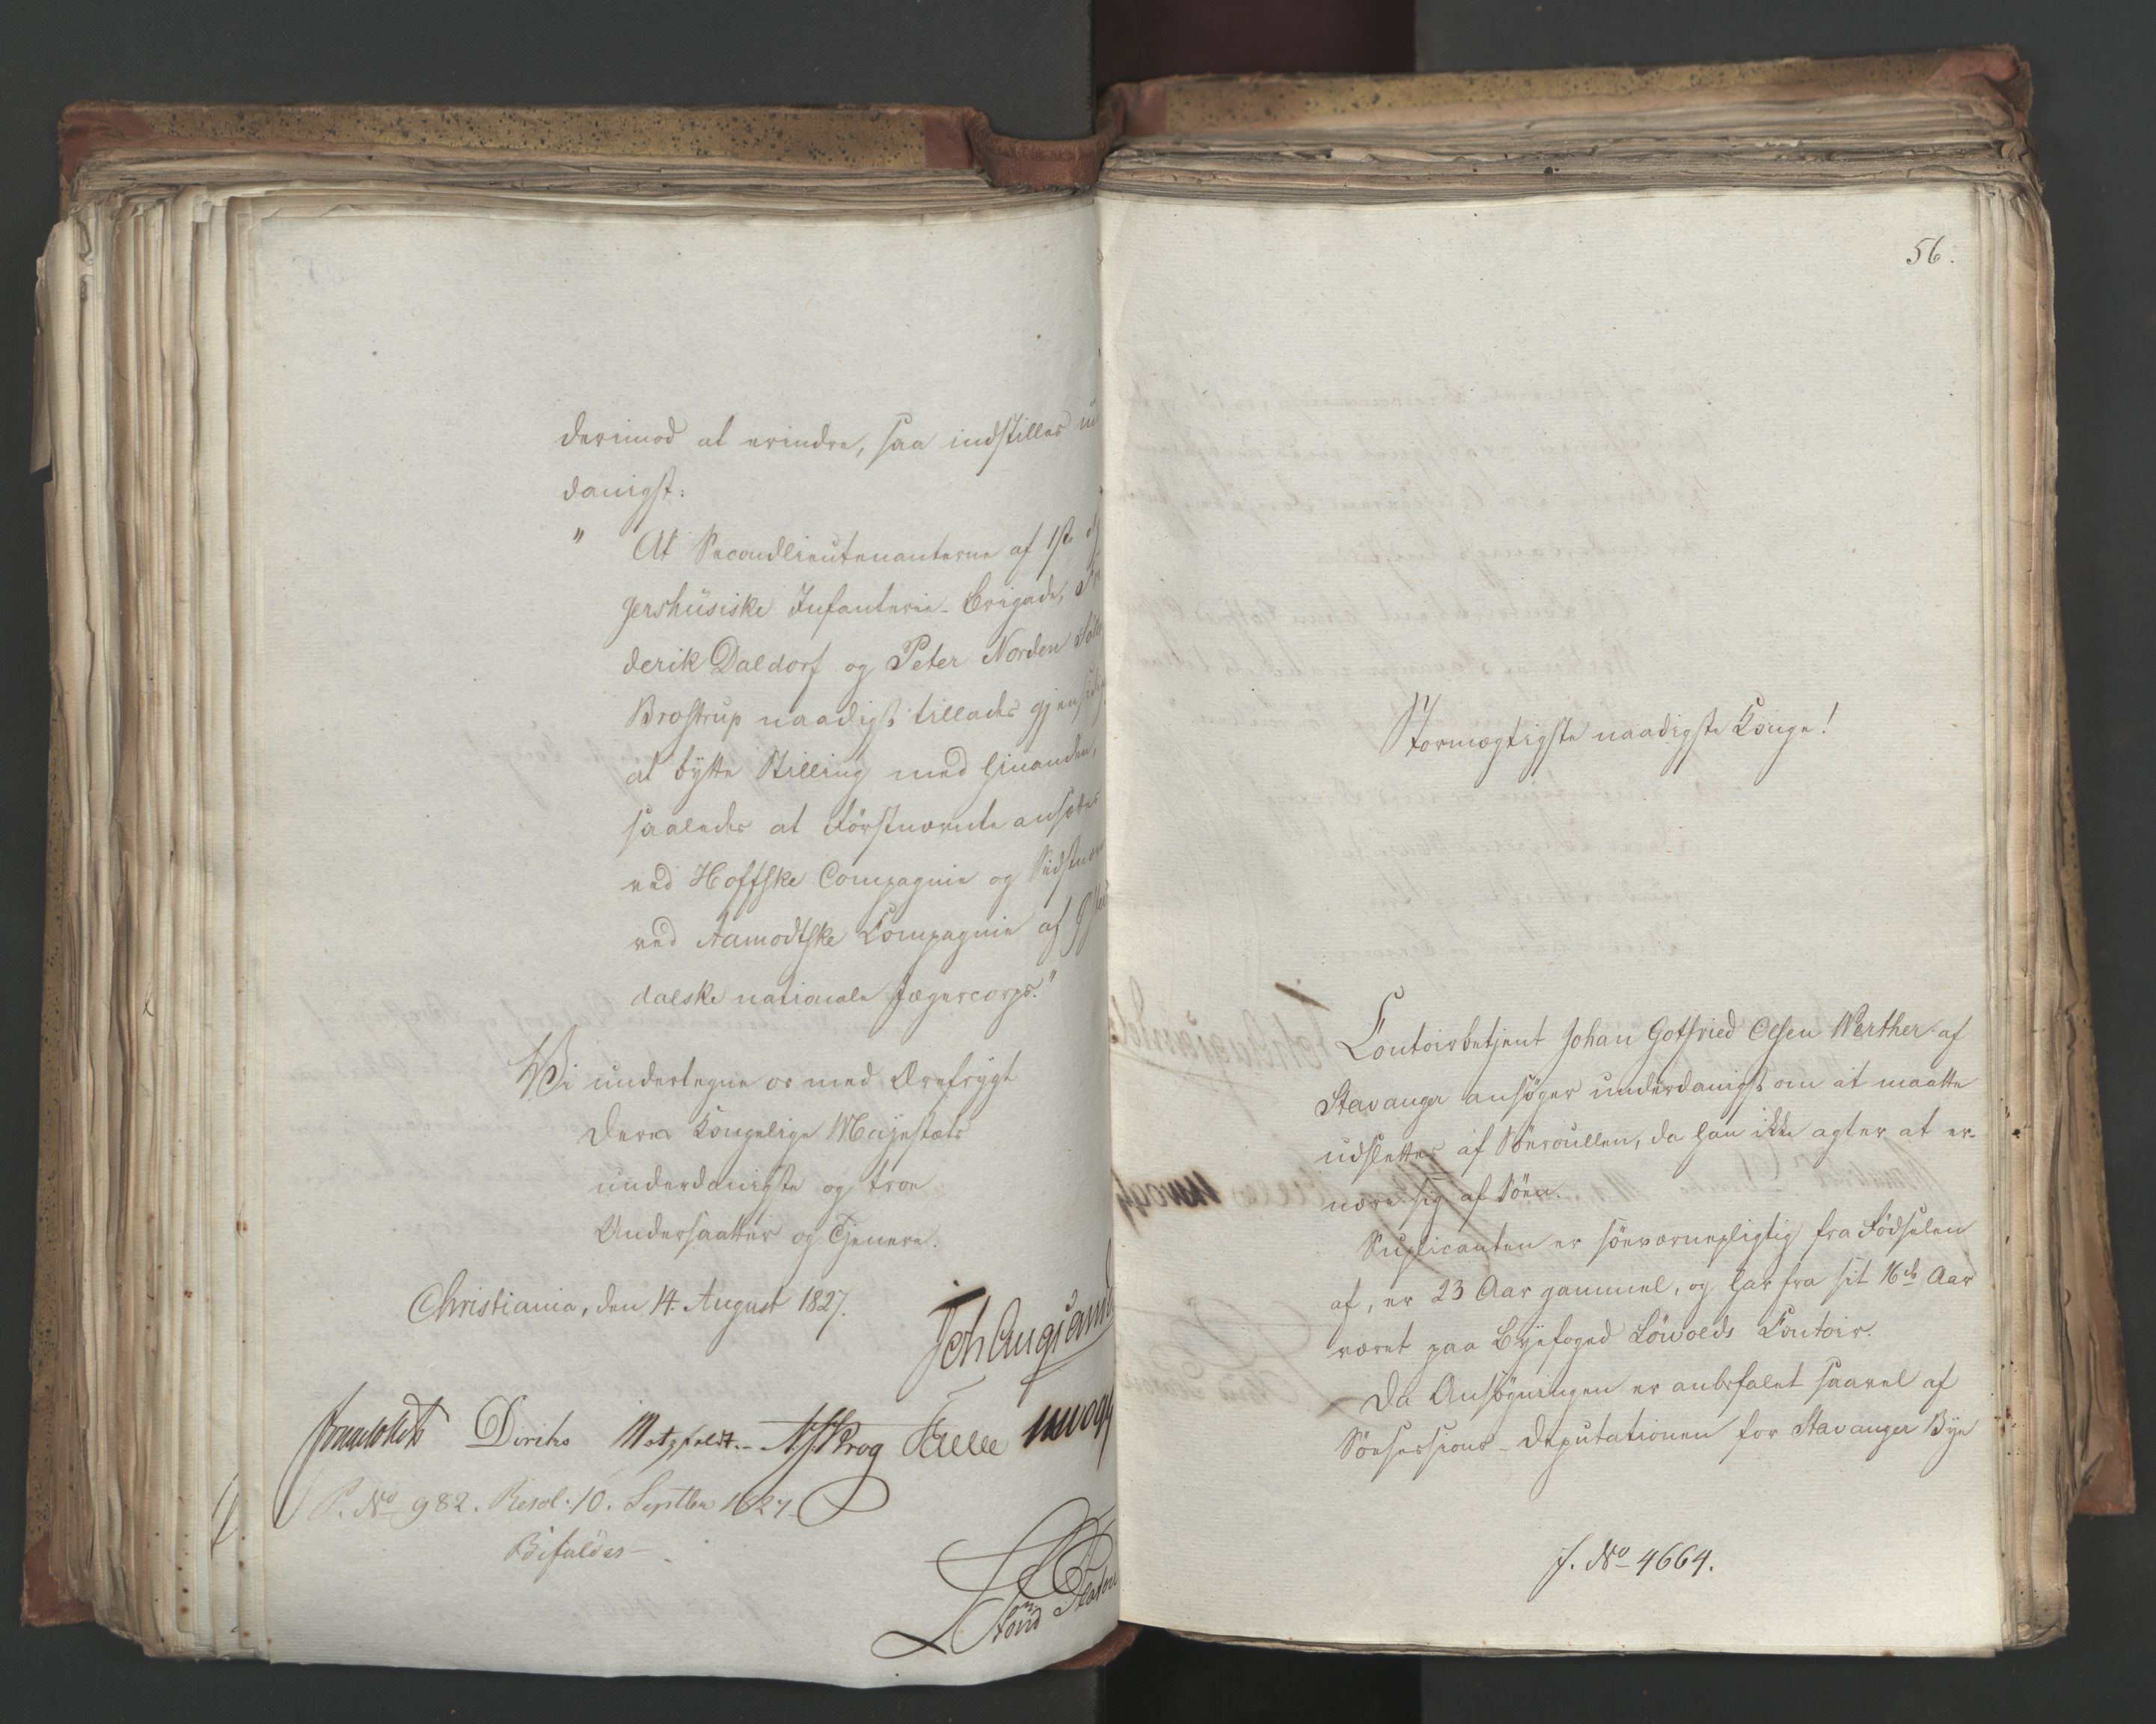 derimod at erindre, saa indstilles un
danigst:
" At Secondlieutenanterne af 1ste
gershusiske Infanterie-Brigade,
derik Daldorf og Peter Norden
Brostrup naadigst tillades gjensidig
at bytte Stilling med hinanden,
saaledes at Förstnævnte ansættes
ved Hoffske Compagnie og Sidstnæv
ved Aamodtske Compagnie af
dalske nationale Jægercorps."
Vi undertegne os med Ærefrygt
Deres Kongelige Majestæts
underdanigste og troe
Undersaatter og Tjenere.
Christiania, den 14. August 1827.
Diriks Motzfeldt. Krog
P. No 982. Resol. 10. Septbr 1827
Bifaldes
56.
Stormægtigste naadigste Konge!
Contoirbetjent Johan Gotfried Olsen Werther af
Stavanger ansöger underdanigst om at maatte
udslettes af Söeroullen, da han ikke agter at er-
nære sig af Söen.
Suplicanten er söeværnepligtig fra Födselen
af, er 23 Aar gammel, og har fra sit 16de Aar
været paa Byefoged Löwolds Contoir.
Da Ansögningen er anbefalet saavel af
Söesessions-Deputationen for Stavanger Bye
J. No 4664.